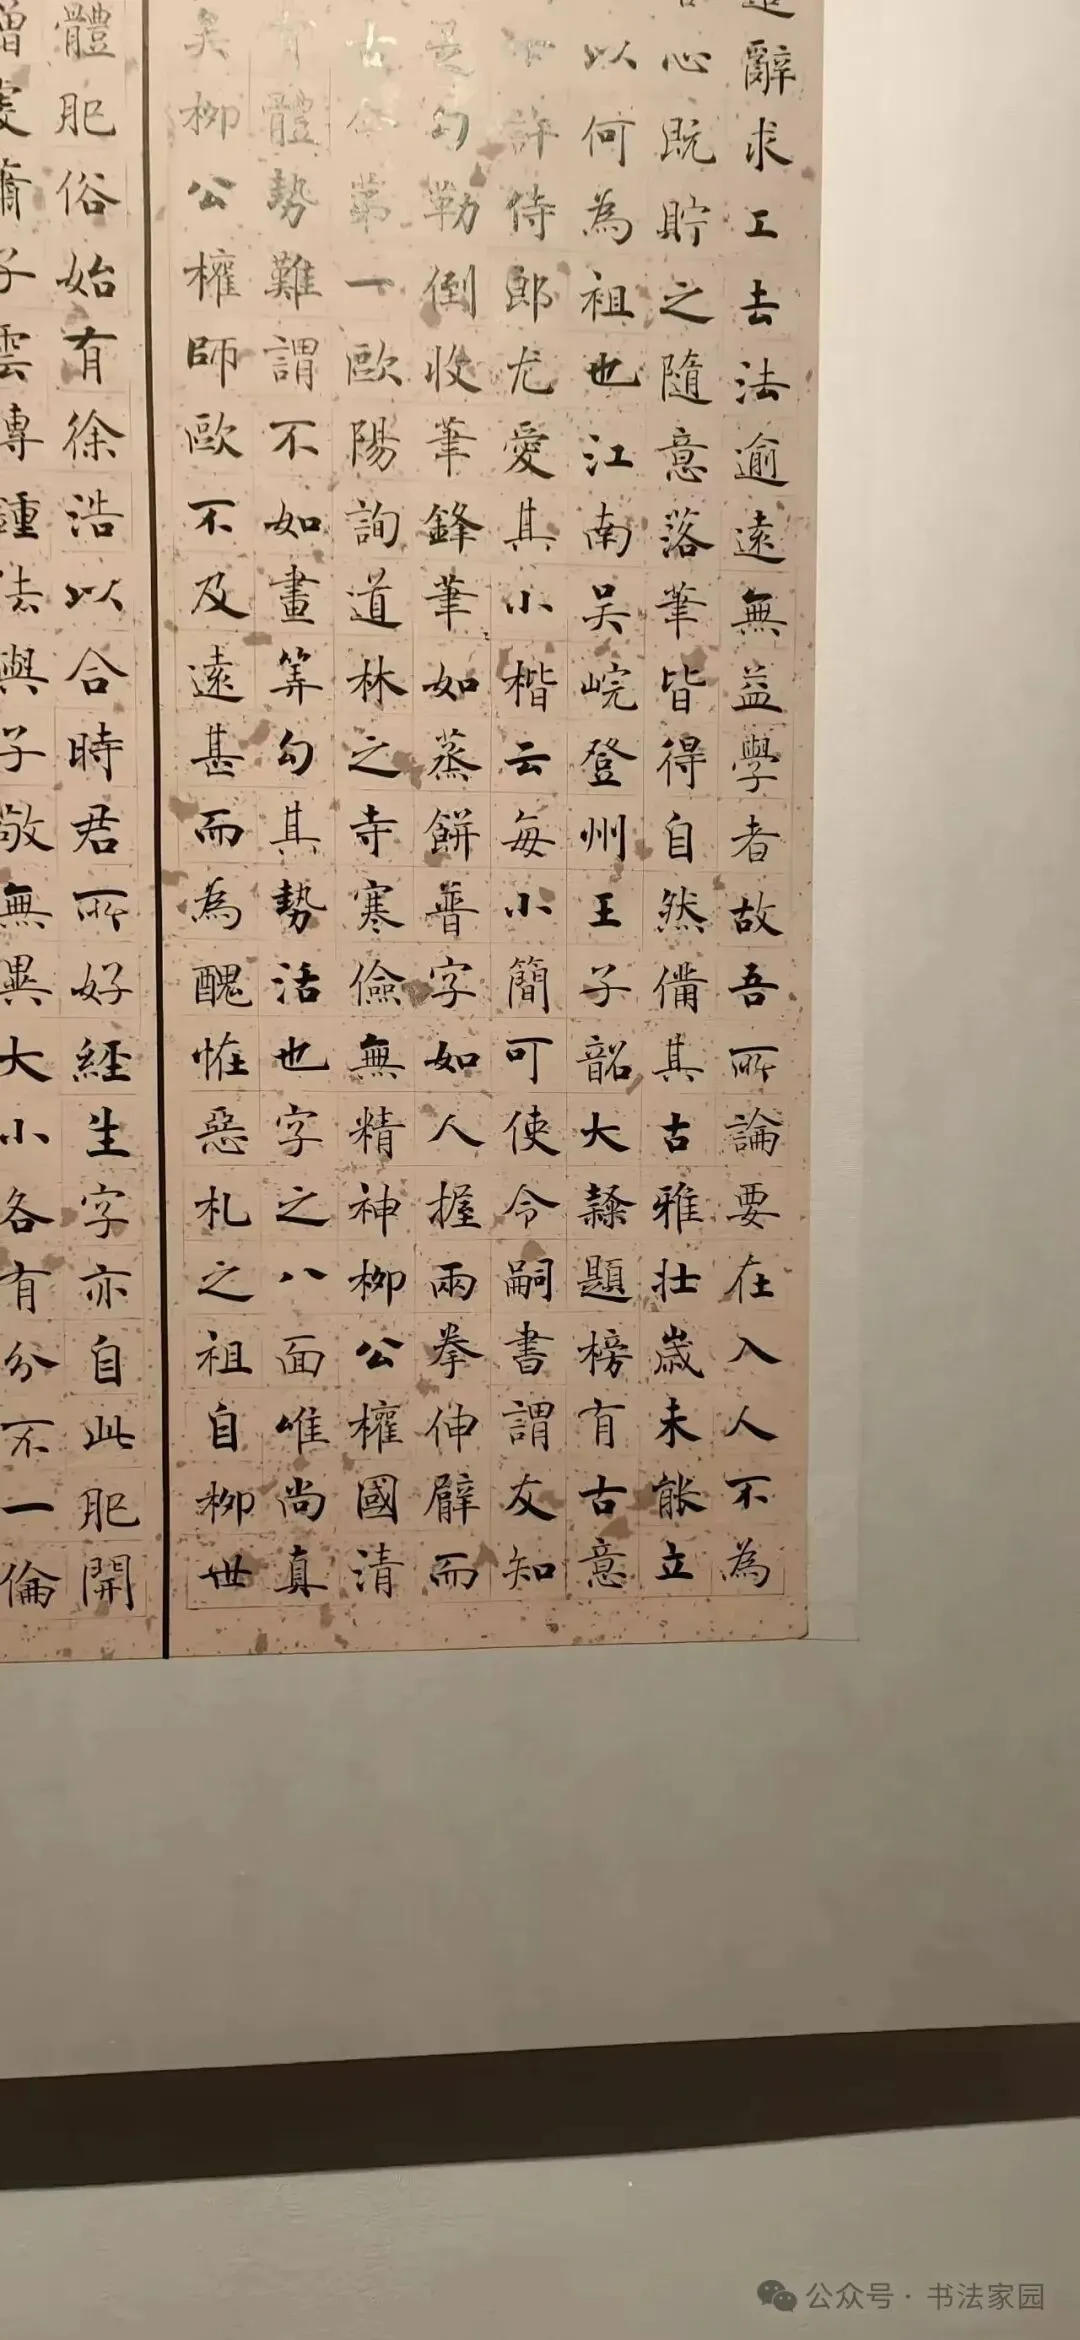 辭求工去法逾遠無益學者故吾所論要在入人不為
心既貯之隨意落筆皆得自然備其古雅壯歲未能立
以何為祖也江南吴皖登州王子韶大隸題榜有古意
許侍郎尤愛其小楷云每小簡可使令嗣書謂友知
是勾勒倒收筆鋒筆如蒸餅普字如人握兩拳伸臂而
古今第一歐陽詢道林之寺寒儉無精神柳公權國清
有體勢難謂不如畫筭勾其勢活也字之八面唯尚真
矣柳公權師歐不及遠甚而為醜怪惡札之祖自柳世
體肥俗始有徐浩以合時君所好經生字亦自此肥開
僧虔蕭子雲傳鍾法與子敬無異大小各有分不一倫
公众号 · 书法家园